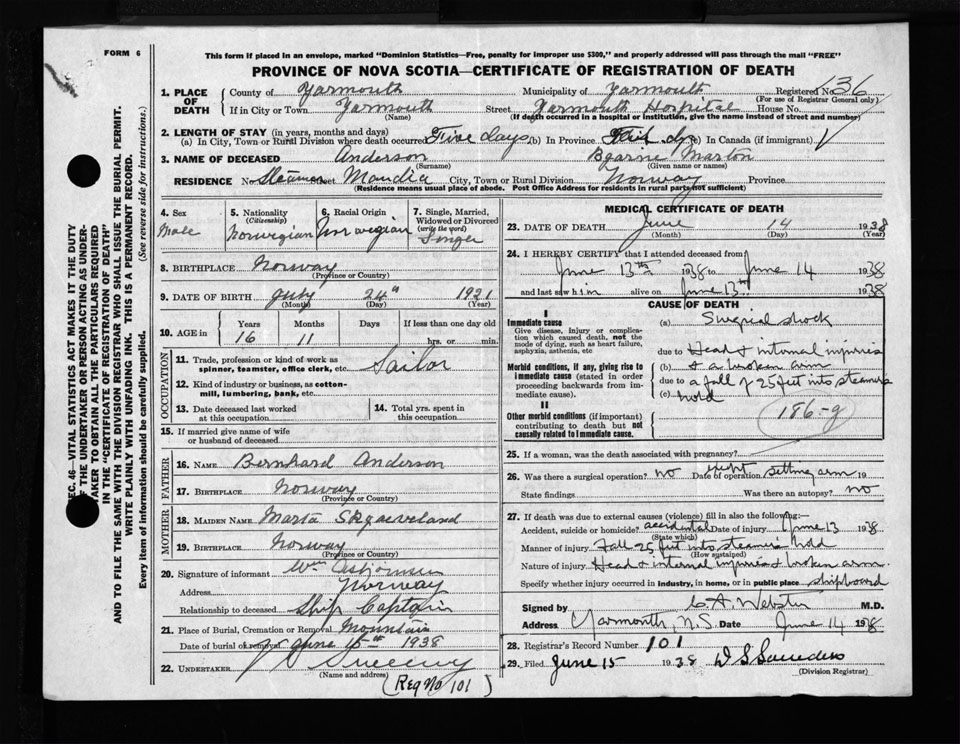 FORM 6
This form if placed in an envelope, marked "Dominion Statistics—Free, penalty for improper use $300," and properly addressed will pass through the mail "FREE"
PROVINCE OF NOVA SCOTIA—CERTIFICATE OF REGISTRATION OF DEATH
SEC. 46—VITAL STATISTICS ACT MAKES IT THE DUTY
OF THE UNDERTAKER OR PERSON ACTING AS UNDER-
TAKER TO OBTAIN ALL THE PARTICULARS REQUIRED
IN THE "CERTIFICATE OF REGISTRATION OF DEATH"
AND TO FILE THE SAME WITH THE DIVISION REGISTRAR WHO SHALL ISSUE THE BURIAL PERMIT.
WRITE PLAINLY WITH UNFADING INK. THIS IS A PERMANENT RECORD.
Every item of information should be carefully supplied. (See reverse side for instructions.)
1. PLACE OF DEATH County of Yarmouth Municipality of Yarmouth Registered No. 136
(For use of Registrar General only)
If in City or Town Yarmouth Street Yarmouth Hospital House No.
(Name) (If death occurred in a hospital or institution, give the name instead of street and number)
2. LENGTH OF STAY (in years, months and days)
(a) In City, Town or Rural Division where death occurred Five days (b) In Province days (c) In Canada (if immigrant)
3. NAME OF DECEASED Anderson Bjarne Marton
(Surname) (Given name or names)
RESIDENCE No. Steamer Street Mandia City, Town or Rural Division Norway Province
(Residence means usual place of abode. Post Office Address for residents in rural parts not sufficient)
4. Sex Male
5. Nationality (Citizenship) Norwegian
6. Racial Origin Norwegian
7. Single, Married, Widowed or Divorced (write the word) Single
8. BIRTHPLACE Norway
(Province or Country)
9. DATE OF BIRTH July 24th 1921
(Month) (Day) (Year)
10. AGE in Years Months Days If less than one day old
16 11 hrs. or min.
OCCUPATION
11. Trade, profession or kind of work as spinner, teamster, office clerk, etc. Sailor
12. Kind of industry or business, as cotton-mill, lumbering, bank, etc.
13. Date deceased last worked at this occupation
14. Total yrs. spent in this occupation
15. If married give name of wife or husband of deceased
FATHER
16. NAME Bernhard Anderson
17. BIRTHPLACE Norway
(Province or Country)
MOTHER
18. MAIDEN NAME Marta Skjaeveland
19. BIRTHPLACE Norway
(Province or Country)
20. Signature of informant Wm Asbjornsen
Address Norway
Relationship to deceased Ship Captain
21. Place of Burial, Cremation or Removal Mountain
Date of burial or removal June 15th 1938
22. UNDERTAKER Sweeny
(Name and address)
(Reg No 101)
MEDICAL CERTIFICATE OF DEATH
23. DATE OF DEATH June 14 1938
(Month) (Day) (Year)
24. I HEREBY CERTIFY that I attended deceased from
June 13th 1938 to June 14 1938
and last saw him alive on June 13th 1938
CAUSE OF DEATH
I
Immediate cause
Give disease, injury or complication which caused death, not the mode of dying, such as heart failure, asphyxia, asthenia, etc
(a) Surgical shock
due to Head & internal injuries
Morbid conditions, if any, giving rise to immediate cause (stated in order proceeding backwards from immediate cause).
(b) & a broken arm
due to a fall of 25 feet into steamers
(c) hold
II
Other morbid conditions (if important) contributing to death but not causally related to immediate cause.
186-g
25. If a woman, was the death associated with pregnancy?
26. Was there a surgical operation? no Date of operation except setting arm 19
State findings Was there an autopsy? no
27. If death was due to external causes (violence) fill in also the following:—
Accident, suicide or homicide? accidental Date of injury June 13 1938
(State which)
Manner of injury Fall 25 feet into steamer's hold
(How sustained)
Nature of injury Head & internal injuries & broken arm.
Specify whether injury occurred in industry, in home, or in public place shipboard
Signed by C. A. Webster M.D.
Address Yarmouth, N.S. Date June 14 1938
28. Registrar's Record Number 101
29. Filed June 15 1938 D S Saunders
(Division Registrar)